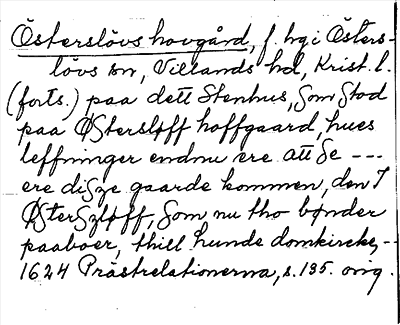 Österslövs hovgård, f. hg i Östers-
lövs sn, Villands hd, Krist. l.
(forts.) paa dett Stenhus, Som Stod
paa Østersløff hoffgaard, hues
leffninger endnu ere att Se ---
ere diSze gaarde kommen, den I
ØsterSzløff, Som nu tho bønder
paaboer, thill Lunde domkircke, --
1624 Prästrelationerna, s. 195. orig.